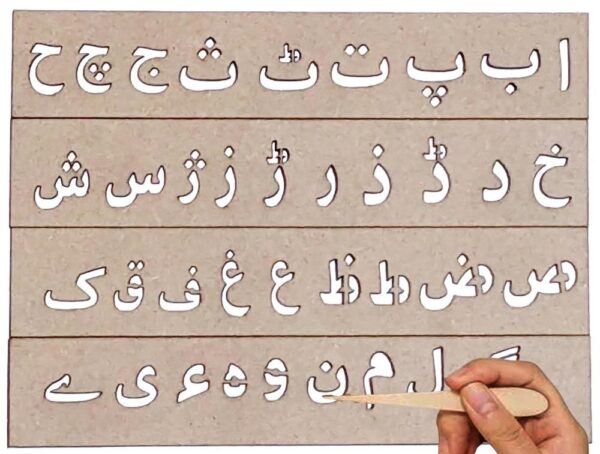 ا ب پ ت ٹ ث ج چ ح
خ د ڈ ذ ر ڑ ز ژ س ش
ص ض ط ظ ع غ ف ق ک
گ ل م ن و ہ ء ی ے